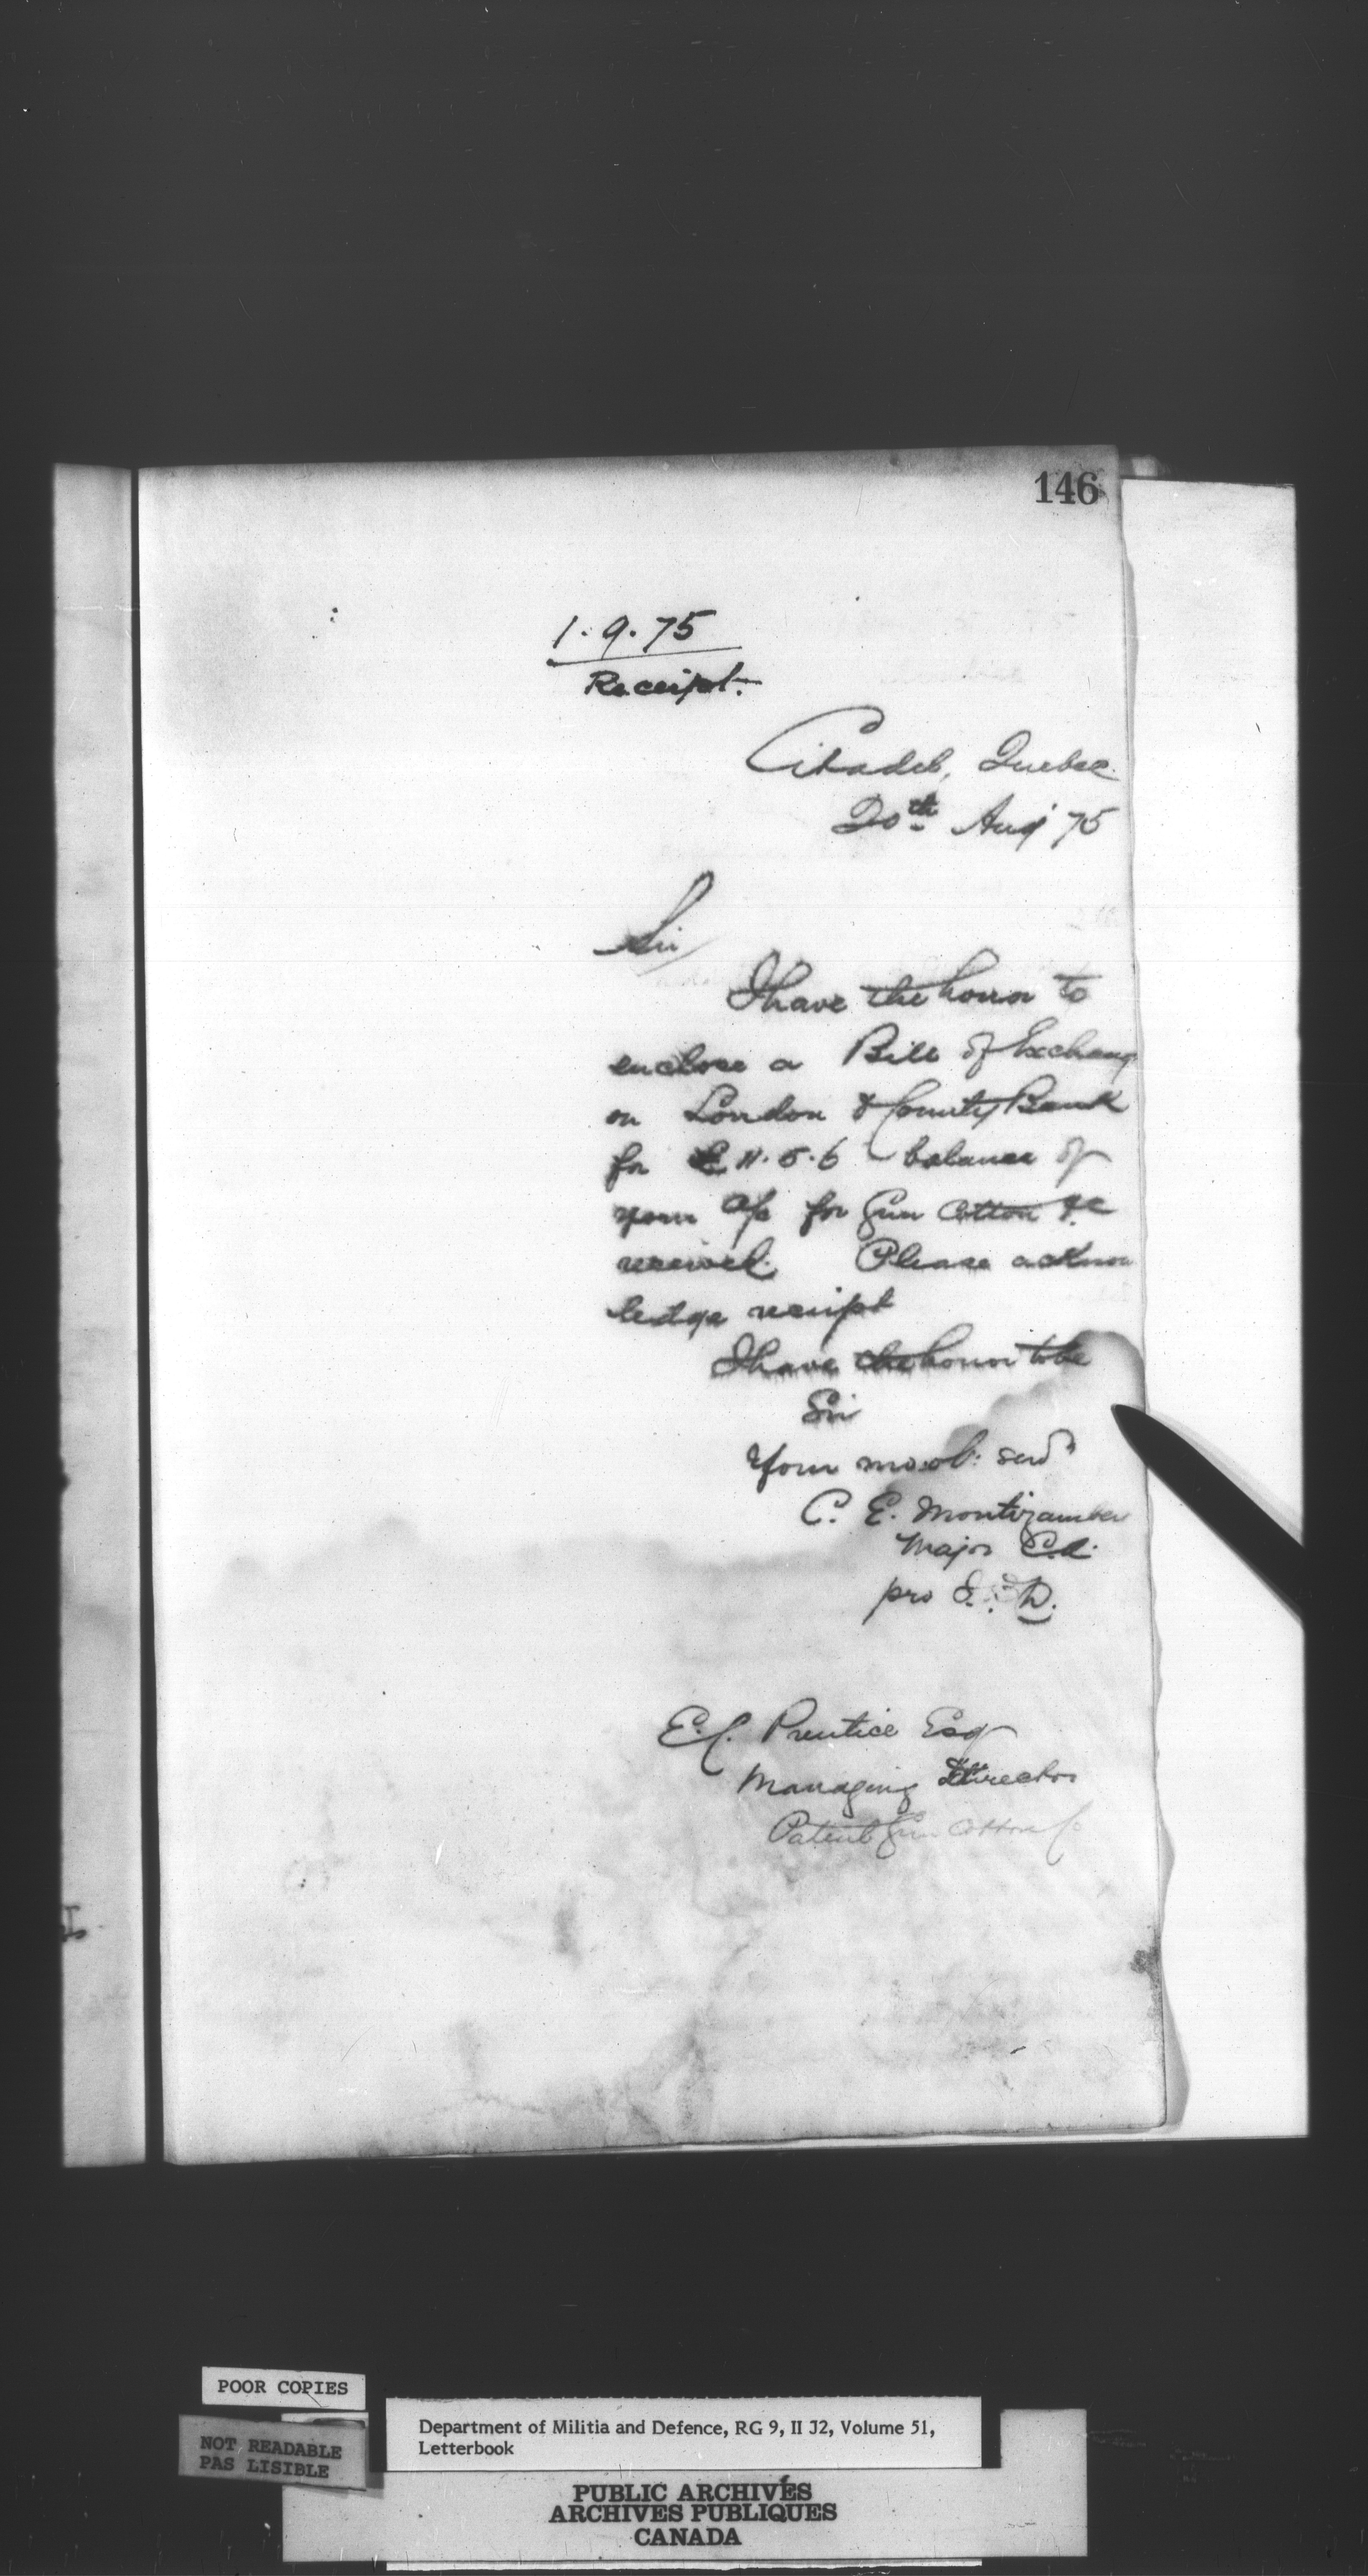 146
1.9.75
Receipt.
Citadel, Quebec.
20th Aug 75
Sir
I have the honor to
enclose a Bill of Exchang
on London & County Bank
for £11.5.6 balance of
your a/c for Gun Cotton &c
received. Please acknow
ledge receipt
I have the honor to be
Sir
Your mo: ob: serv
C. E. Montizamber
Major
pro
E. C. Prentice Esq
Managing Director
Patent Gun Cotton Co
POOR COPIES
NOT READABLE
PAS LISIBLE
Department of Militia and Defence, RG 9, II J2, Volume 51,
Letterbook
PUBLIC ARCHIVES
ARCHIVES PUBLIQUES
CANADA